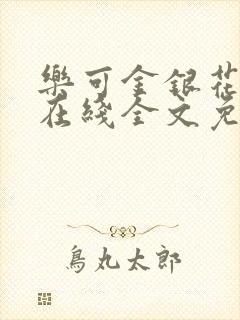 樂可金銀花
在綫全文免
鳥丸太郎